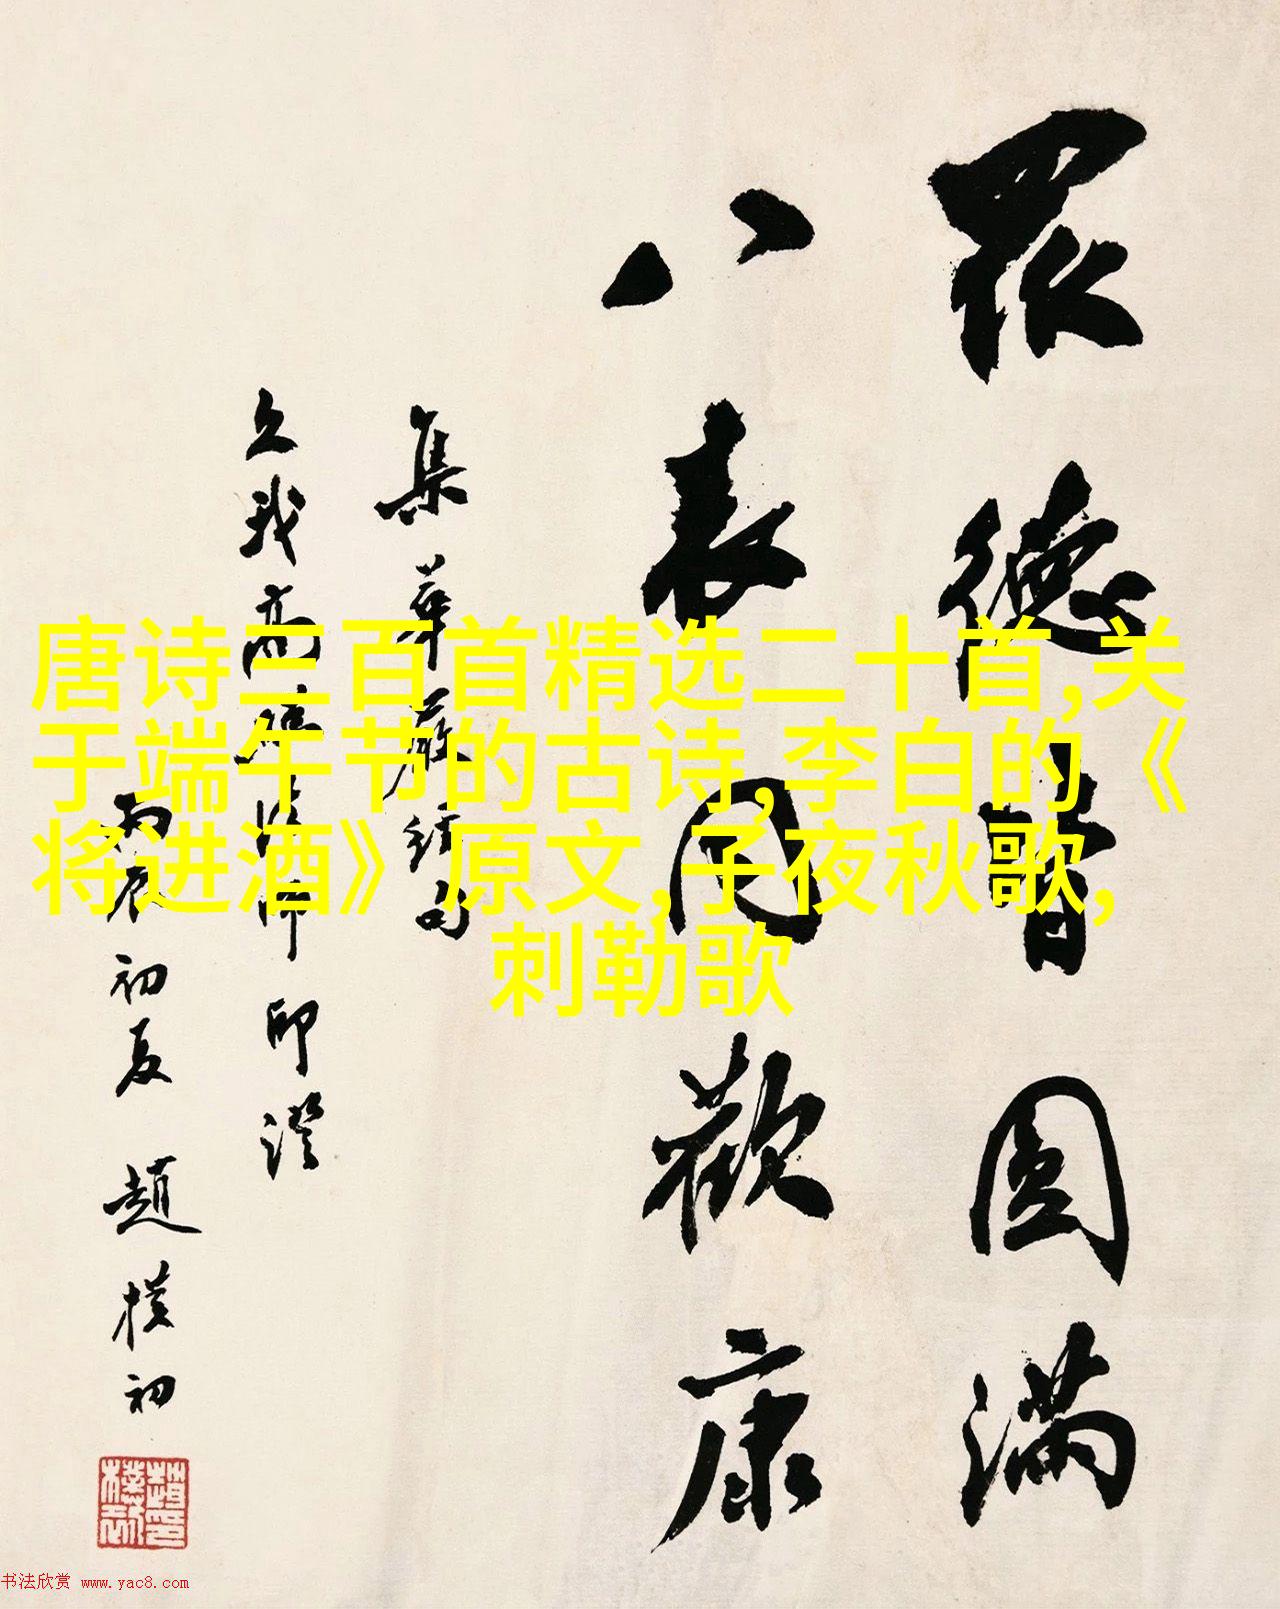 眾德皆圓滿
八表同歡康
集華嚴經句
久我高法師印證
丙辰初夏 趙樸初
唐诗三百首精选二十首,关
于端午节的古诗,李白的《
将进酒》原文,子夜秋歌,
刺勒歌
书法欣赏 www.yac8.com